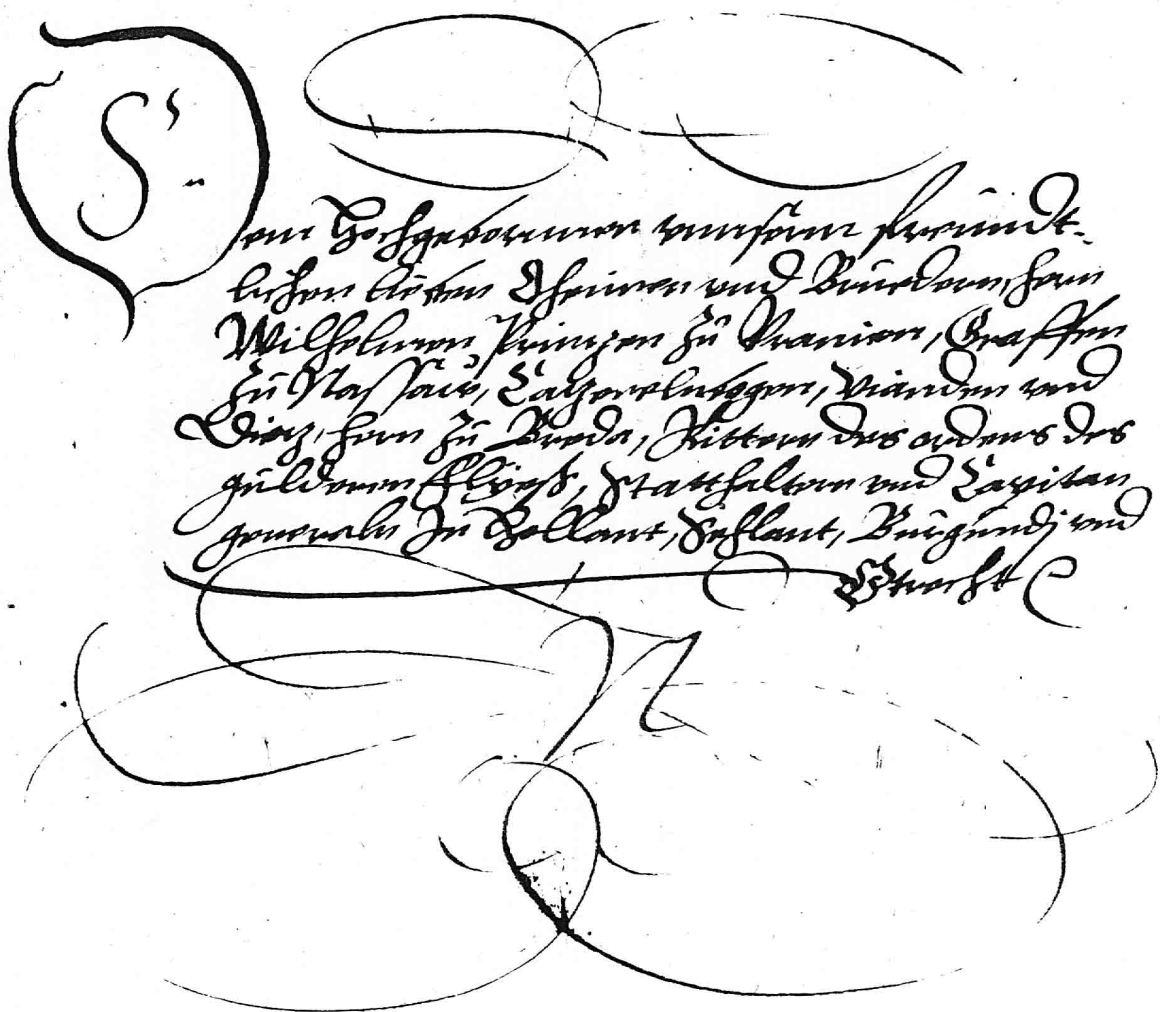 Dem Hochgebornnen vnnserm freundt-
lichen lieben Oheimen vnd Bruedern, hern
Wilhelmen Printzen zu Vranien, Graffen
zu Nassaw, Catzenelnbogen, Vianden vnd
Dietz, hern zu Breda, Rittern des ordens des
guldenen Flyess, Statthaltern vnd Capitan
generaln In Hollant, Sehlant, Burgundj vnd
Vtrecht